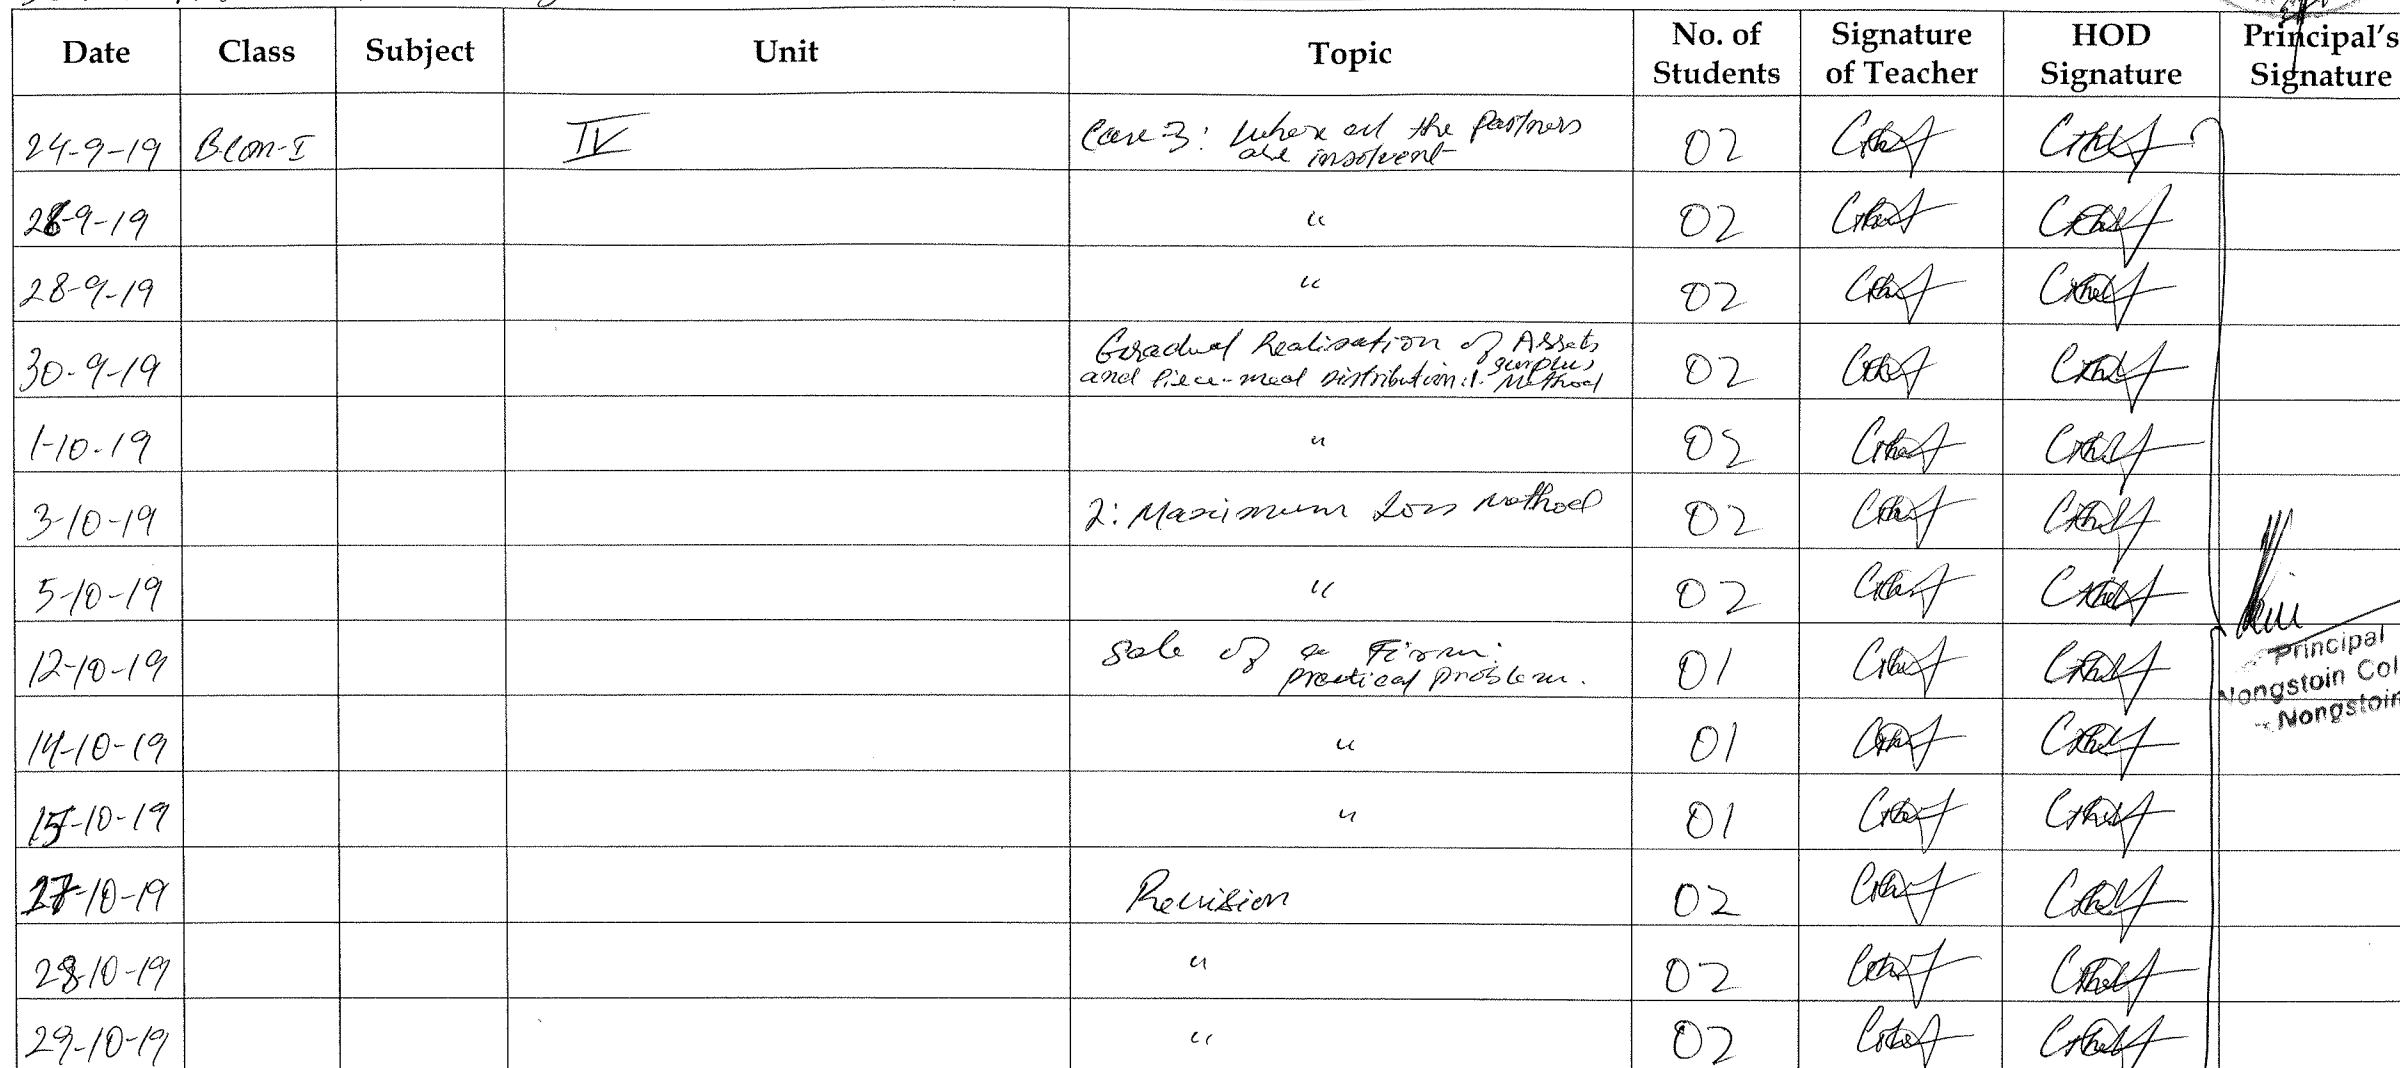 Date Class Subject Unit Topic No. of Students Signature of Teacher HOD Signature Principal's Signature
24-9-19 B.Com-I IV Case-3: Where all the Partners are insolvent 02
26-9-19 " 02
28-9-19 " 02
30-9-19 Gradual Realisation of Assets and Piece-meal Distribution: 1. Surplus Method 02
1-10-19 " 02
3-10-19 2: Maximum Loss Method 02
5-10-19 " 02
12-10-19 Sale of a Firm: Practical Problem. 01
14-10-19 " 01
15-10-19 " 01
27-10-19 Revision 02
28-10-19 " 02
29-10-19 " 02
Principal
Nongstoin Col
Nongstoin